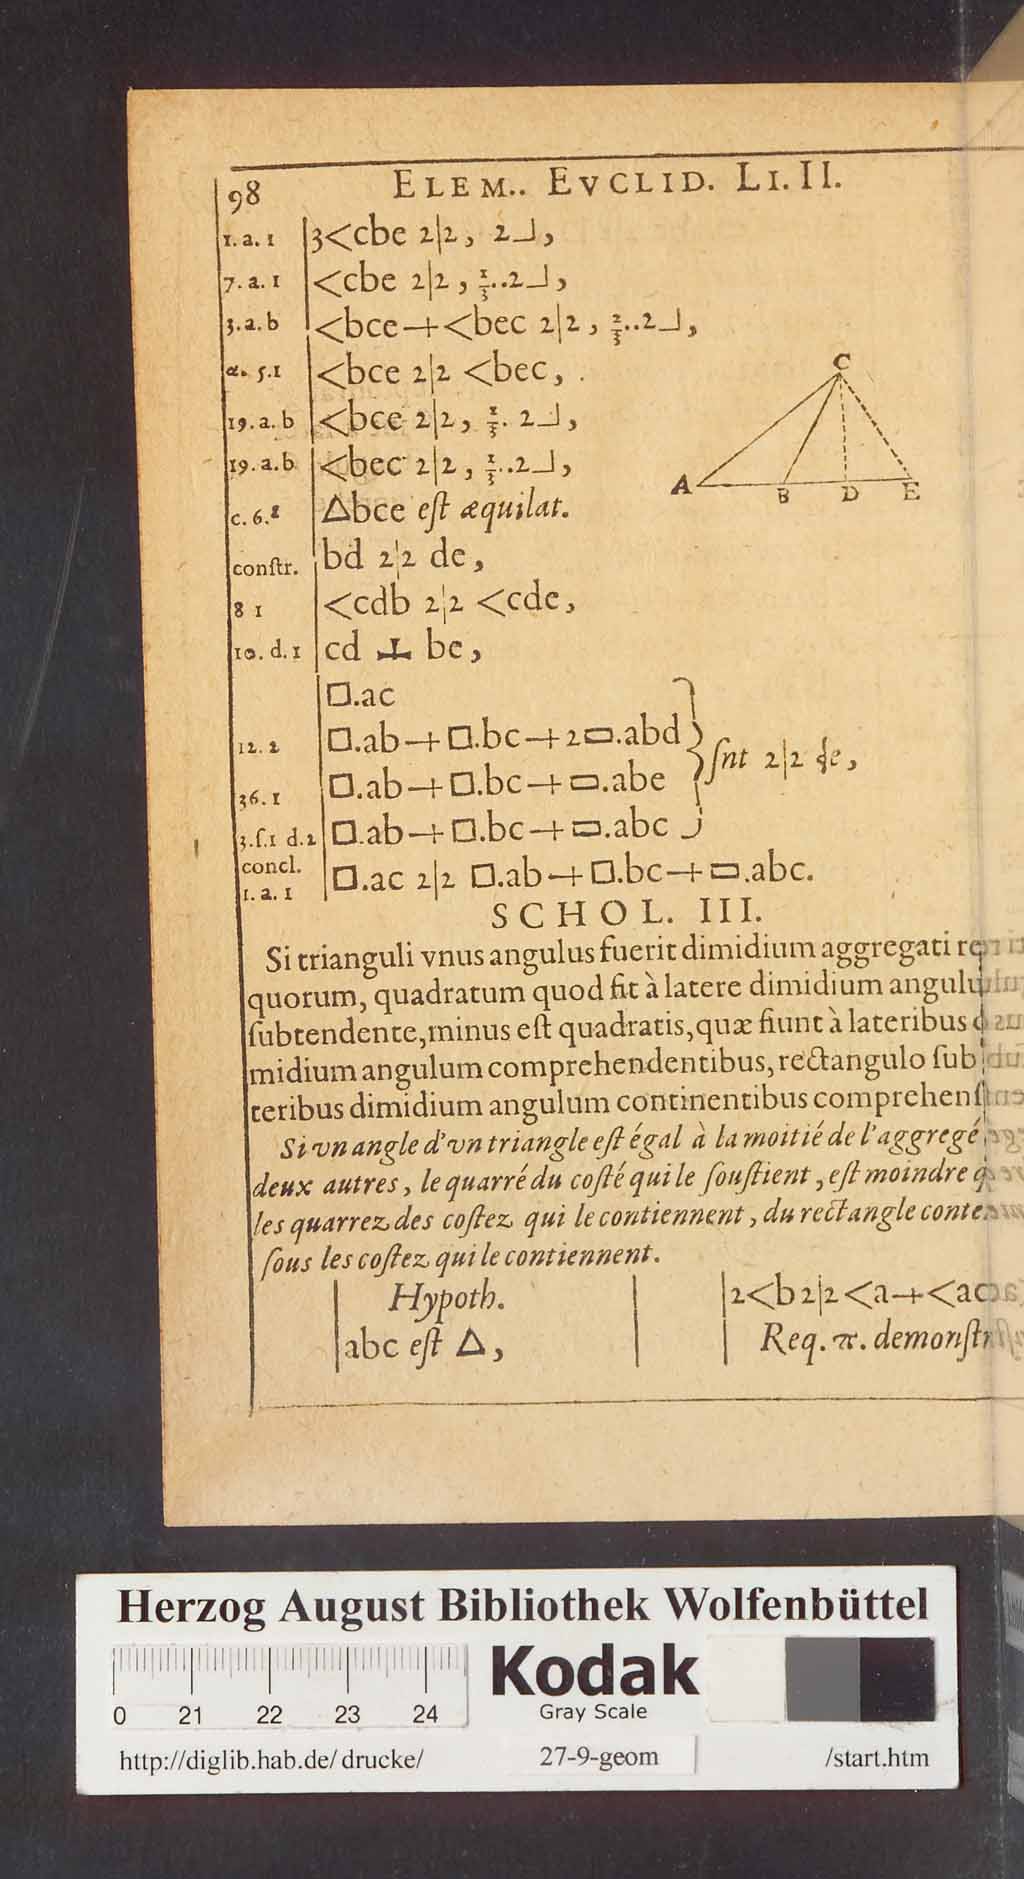 98 ELEM.. EVCLID. LI. II.
1. a. 1 3<cbe 2|2, 2⅃,
7. a. 1 <cbe 2|2, ⅓..2⅃,
3. a. b <bce + <bec 2|2, ⅔..2⅃,
α. 5.1 <bce 2|2 <bec,
19. a. b <bce 2|2, ⅓. 2⅃,
19. a. b <bec 2|2, ⅓..2⅃,
c. 6.1 △bce eſt æquilat.
conſtr. bd 2|2 de,
8 1 <cdb 2|2 <cde,
10. d. 1 cd ⊥ be,
□.ac
12. 2 □.ab + □.bc + 2▭.abd
36. 1 □.ab + □.bc + ▭.abe
ſnt 2|2 de,
3. ſ. 1 d. 2 □.ab + □.bc + ▭.abc
concl.
1. a. 1 □.ac 2|2 □.ab + □.bc + ▭.abc.
C
A B D E
SCHOL. III.
Si trianguli vnus angulus fuerit dimidium aggregati re
quorum, quadratum quod fit à latere dimidium angulu
ſubtendente, minus eſt quadratis, quæ fiunt à lateribus
midium angulum comprehendentibus, rectangulo ſub
teribus dimidium angulum continentibus comprehenſ
Si vn angle d'vn triangle eſt égal à la moitié de l'aggregé
deux autres, le quarré du coſté qui le ſouſtient, eſt moindre q
les quarrez des coſtez qui le contiennent, du rectangle conte
ſous les coſtez qui le contiennent.
Hypoth. 2<b 2|2 <a + <ac
abc eſt △, Req. π. demonſtr
Herzog August Bibliothek Wolfenbüttel
Kodak
Gray Scale
0 21 22 23 24
http://diglib.hab.de/drucke/ 27-9-geom /start.htm